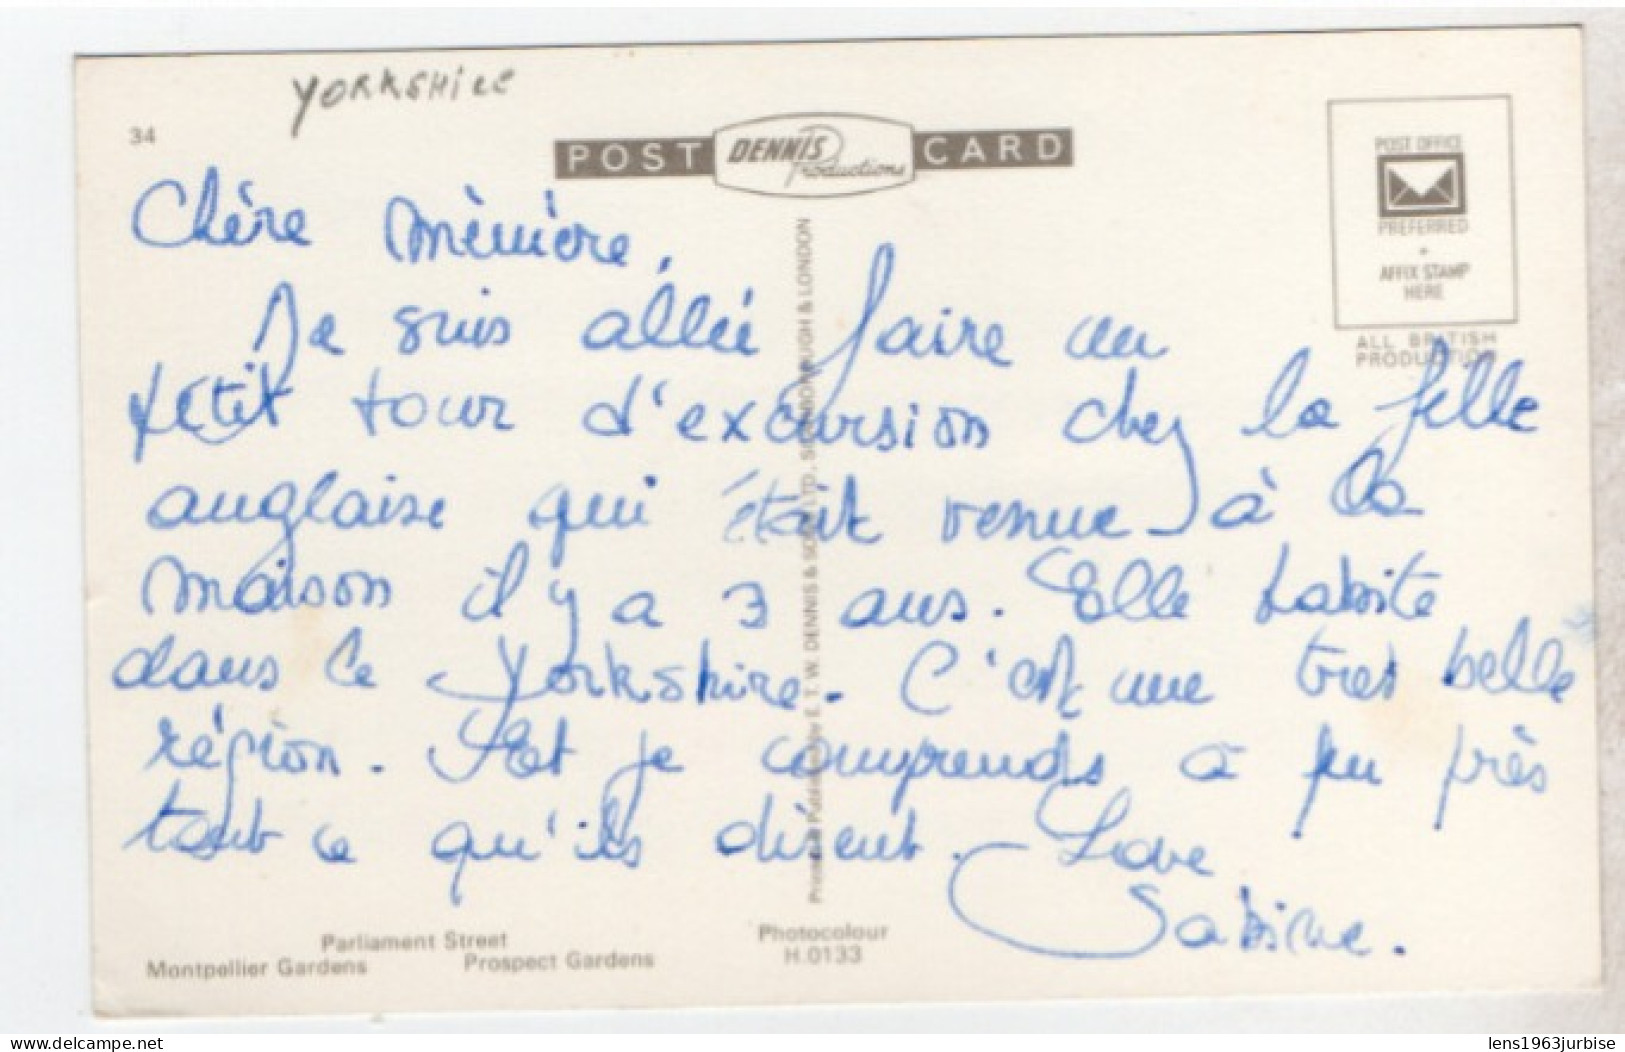 YORKSHIRE
34
POST DENNIS Productions CARD
POST OFFICE
PREFERRED
AFFIX STAMP
HERE
ALL BRITISH
PRODUCTION
Chère mèmère,
Je suis allée faire un
petit tour d'excursion chez la fille
anglaise qui était venue à la
maison il y a 3 ans. Elle habite
dans le Yorkshire. C'est une très belle
région. Et je comprends à peu près
tout ce qu'ils disent. Love
Sabine.
Printed & Published by E. T. W. DENNIS & SONS LTD., SCARBOROUGH & LONDON
Parliament Street
Montpellier Gardens Prospect Gardens
Photocolour
H.0133
delcampe.net
lens1963jurbise